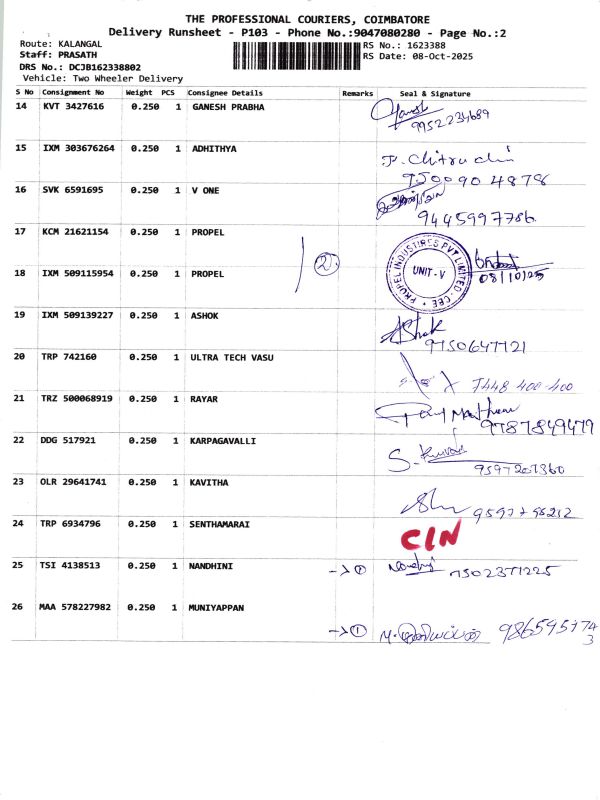 THE PROFESSIONAL COURIERS, COIMBATORE
Delivery Runsheet - P103 - Phone No.:9047080280 - Page No.:2
Route: KALANGAL
RS No.: 1623388
Staff: PRASATH
RS Date: 08-Oct-2025
DRS No.: DCJB162338802
Vehicle: Two Wheeler Delivery
S No Consignment No Weight PCS Consignee Details Remarks Seal & Signature
14 KVT 3427616 0.250 1 GANESH PRABHA
9952234689
15 IXM 303676264 0.250 1 ADHITHYA
16 SVK 6591695 0.250 1 V ONE
9445997786
17 KCM 21621154 0.250 1 PROPEL
2
PROPEL INDUSTIRES PVT LIMITED CBE
UNIT-V
08/10/25
18 IXM 509115954 0.250 1 PROPEL
19 IXM 509139227 0.250 1 ASHOK
Ashok
9750647721
20 TRP 742160 0.250 1 ULTRA TECH VASU
7448 400 400
21 TRZ 500068919 0.250 1 RAYAR
9787849479
22 DDG 517921 0.250 1 KARPAGAVALLI
9597207360
23 OLR 29641741 0.250 1 KAVITHA
24 TRP 6934796 0.250 1 SENTHAMARAI
25 TSI 4138513 1 0.250 NANDHINI
7502371225
26 MAA 578227982 0.250 1 MUNIYAPPAN
1